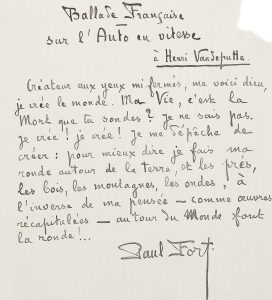 Ballade Française
sur l'Auto en vitesse
à Henri Vandeputte.
Créateur aux yeux mi fermés, me voici dieu,
je crée le monde. Ma Vie, c'est la
Mort que tu sondes ? Je ne sais pas.
Je crée ! je crée ! Je me dépêche de
créer : pour mieux dire je fais ma
ronde autour de la terre, et les prés,
les bois, les montagnes, les ondes, à
l'inverse de ma pensée — comme œuvres
récapitulées — autour du Monde font
la ronde !...
Paul Fort